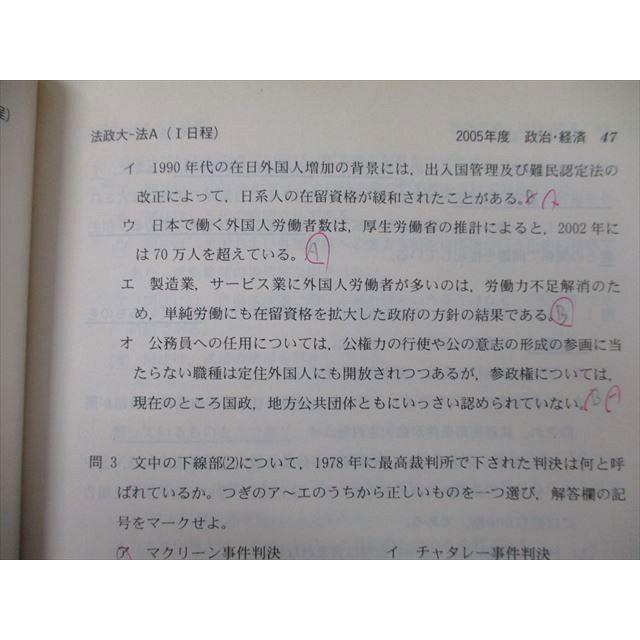 程)
法政大-法A(Ⅰ日程)
2005年度 政治・経済 47
イ 1990年代の在日外国人増加の背景には,出入国管理及び難民認定法の
改正によって,日系人の在留資格が緩和されたことがある。A
ウ 日本で働く外国人労働者数は,厚生労働省の推計によると,2002年に
は70万人を超えている。A
エ 製造業,サービス業に外国人労働者が多いのは,労働力不足解消のた
め,単純労働にも在留資格を拡大した政府の方針の結果である。B
オ 公務員への任用については,公権力の行使や公の意志の形成の参画に当
たらない職種は定住外国人にも開放されつつあるが,参政権については,
現在のところ国政,地方公共団体ともにいっさい認められていない。B A
問3 文中の下線部(2)について,1978年に最高裁判所で下された判決は何と呼
ばれているか。つぎのア~エのうちから正しいものを一つ選び,解答欄の記
号をマークせよ。
ア マクリーン事件判決 イ チャタレー事件判決